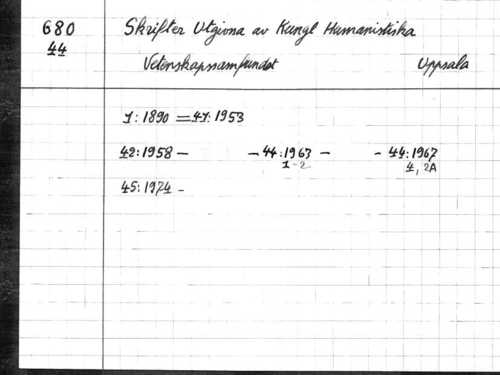 680
44
Skrifter Utgivna av Kungl Humanistiska
Vetenskapssamfundet Uppsala
1:1890 = 41:1953
42:1958 - - 44:1963 - - 44:1967
1-2 4, 2A
45:1974 -